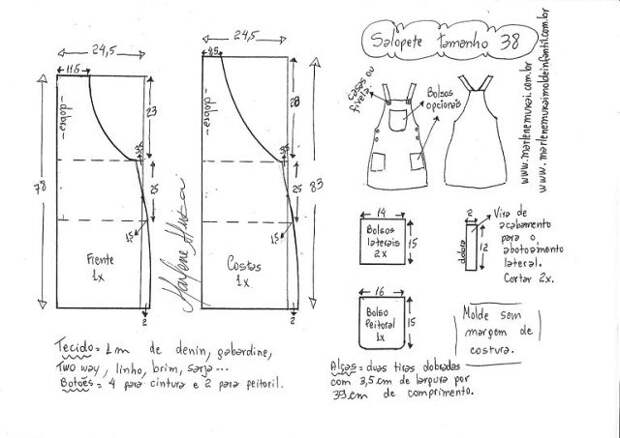 Salopete tamanho 38
www.marlenemukai.com.br
www.marlenemukaimoldeinfantil.com.br
24,5
11,5
-dobra-
23
78
1,5
Frente
1x
2
24,5
8,5
-dobra-
28
83
1,5
Costas
1x
2
Marlene Mukai
Casas ou
fivela
Bolsos
opcionais
14
Bolsos
laterais
2x
15
2
dobra
12
Vira de
acabamento
para o
abotoamento
lateral.
Cortar 2x.
16
Bolso
Peitoral
1x
15
Molde sem
margem de
costura.
Tecido = 1m de denin, gabardine,
Two way, linho, brim, sarja...
Botões = 4 para cintura e 2 para peitoril.
Alças = duas tiras dobradas
com 3,5 cm de largura por
39 cm de comprimento.